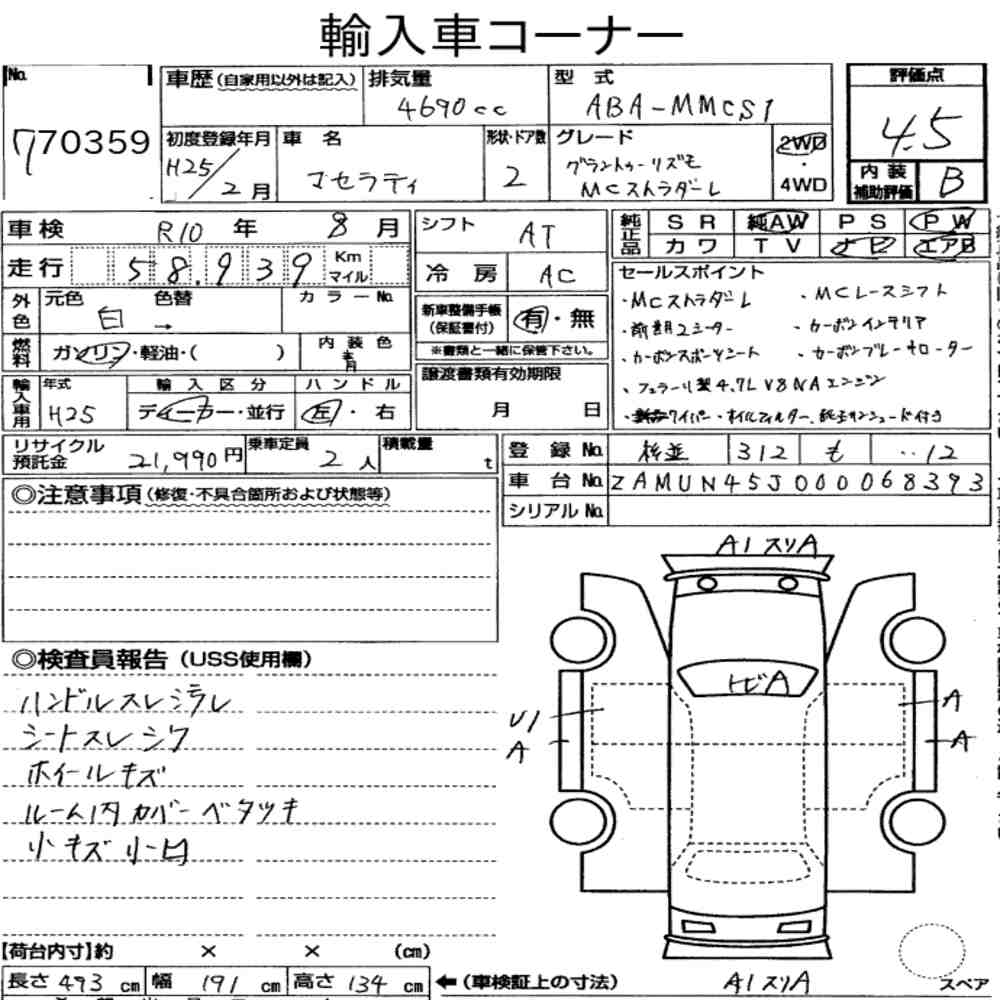 輸入車コーナー
No.
770359
車歴 (自家用以外は記入)
排気量
4690cc
型 式
ABA-MMCS1
評価点
4.5
初度登録年月
H25/2月
車 名
マセラティ
形状・ドア数
2
グレード
グラントゥーリズモ
MCストラダーレ
2WD
・
4WD
内 装
補助評価
B
車検 R10 年 8 月
走行 58.939 Km マイル
シフト AT
冷 房 AC
純正品
SR 純AW PS PW
カワ TV ナビ エアB
外色 元色 白 → 色替 カラーNo.
燃料 ガソリン・軽油・( ) 内装色
輸入車用 年式 H25
輸入区分 ディーラー・並行
ハンドル 左・右
新車整備手帳
(保証書付) 有・無
※書類と一緒に保管下さい。
譲渡書類有効期限
月 日
セールスポイント
・MCストラダーレ ・MCレースシフト
・前期2シーター ・カーボンインテリア
・カーボンスポーツシート ・カーボンブレーキローター
・フェラーリ製4.7L V8NAエンジン
ワイパー・オイルフィルター、純正サンシェード付き
リサイクル
預託金 21,990円
乗車定員 2人
積載量 t
登 録 No. 杉並 312 も ‥12
車 台 No. ZAMUN45J000068393
シリアル No.
◎注意事項 (修復・不具合箇所および状態等)
A1 スリA
◎検査員報告 (USS使用欄)
ハンドルスレシラレ
シートスレシワ
ホイールキズ
ルーム内カバーベタツキ
小キズ小凹
トビA
U1
A
A
A
【荷台内寸】約 × × (cm)
長さ 493 cm 幅 191 cm 高さ 134 cm ←(車検証上の寸法)
A1スリA
スペア